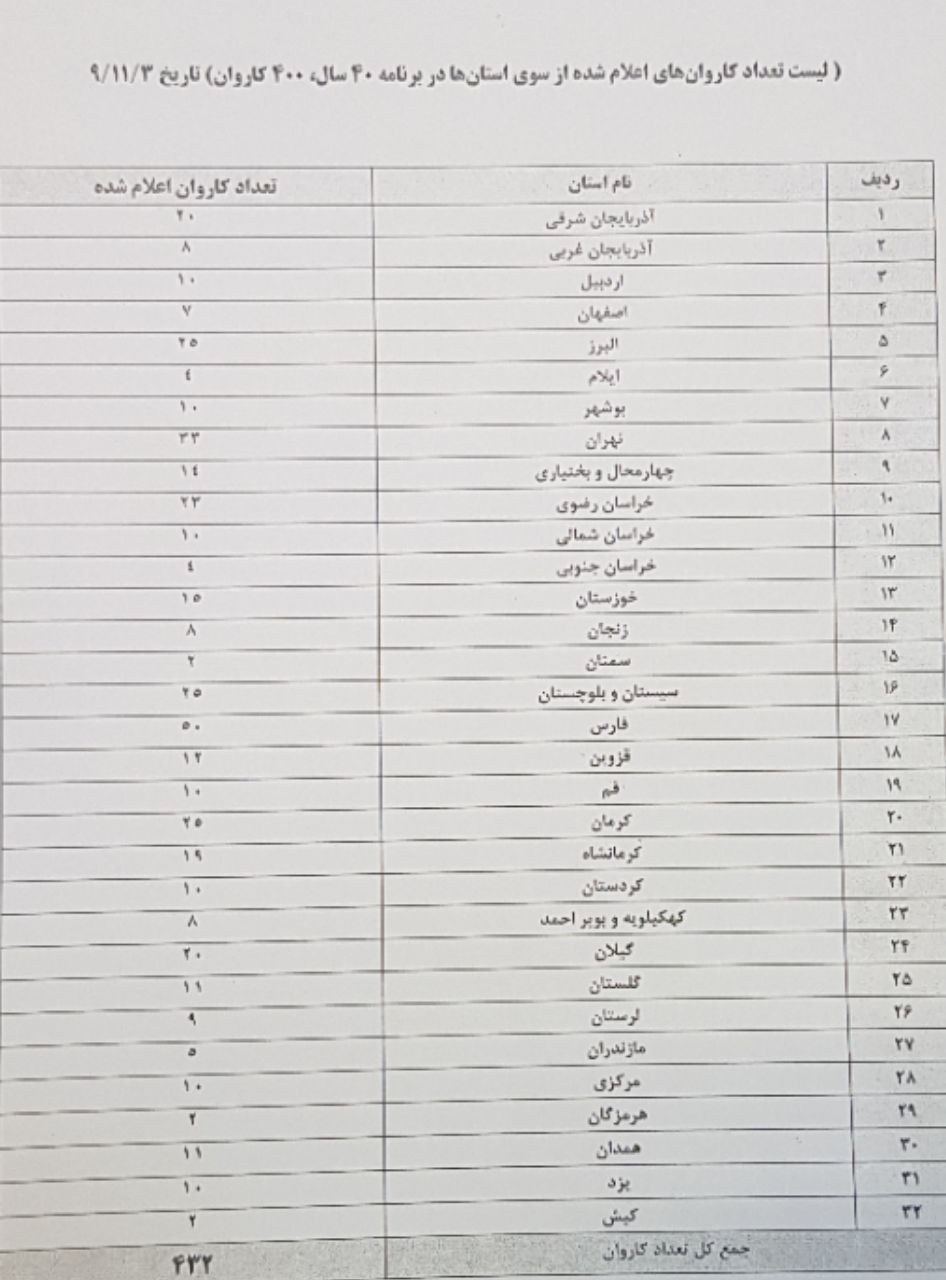 ( لیست تعداد کاروان‌های اعلام شده از سوی استان‌ها در برنامه ۴۰ سال، ۴۰۰ کاروان) تاریخ ۹/۱۱/۳
ردیف نام استان تعداد کاروان اعلام شده
۱ آذربایجان شرقی ۲۰
۲ آذربایجان غربی ۸
۳ اردبیل ۱۰
۴ اصفهان ۷
۵ البرز ۲۵
۶ ایلام ٤
۷ بوشهر ۱۰
۸ تهران ۳۳
۹ چهارمحال و بختیاری ۱٤
۱۰ خراسان رضوی ۲۳
۱۱ خراسان شمالی ۱۰
۱۲ خراسان جنوبی ٤
۱۳ خوزستان ۱۵
۱۴ زنجان ۸
۱۵ سمنان ۲
۱۶ سیستان و بلوچستان ۲۵
۱۷ فارس ۵۰
۱۸ قزوین ۱۲
۱۹ قم ۱۰
۲۰ کرمان ۲۵
۲۱ کرمانشاه ۱۹
۲۲ کردستان ۱۰
۲۳ کهکیلویه و بویر احمد ۸
۲۴ گیلان ۲۰
۲۵ گلستان ۱۱
۲۶ لرستان ۹
۲۷ مازندران ۵
۲۸ مرکزی ۱۰
۲۹ هرمزگان ۲
۳۰ همدان ۱۱
۳۱ یزد ۱۰
۳۲ کیش ۲
جمع کل تعداد کاروان ۴۳۲